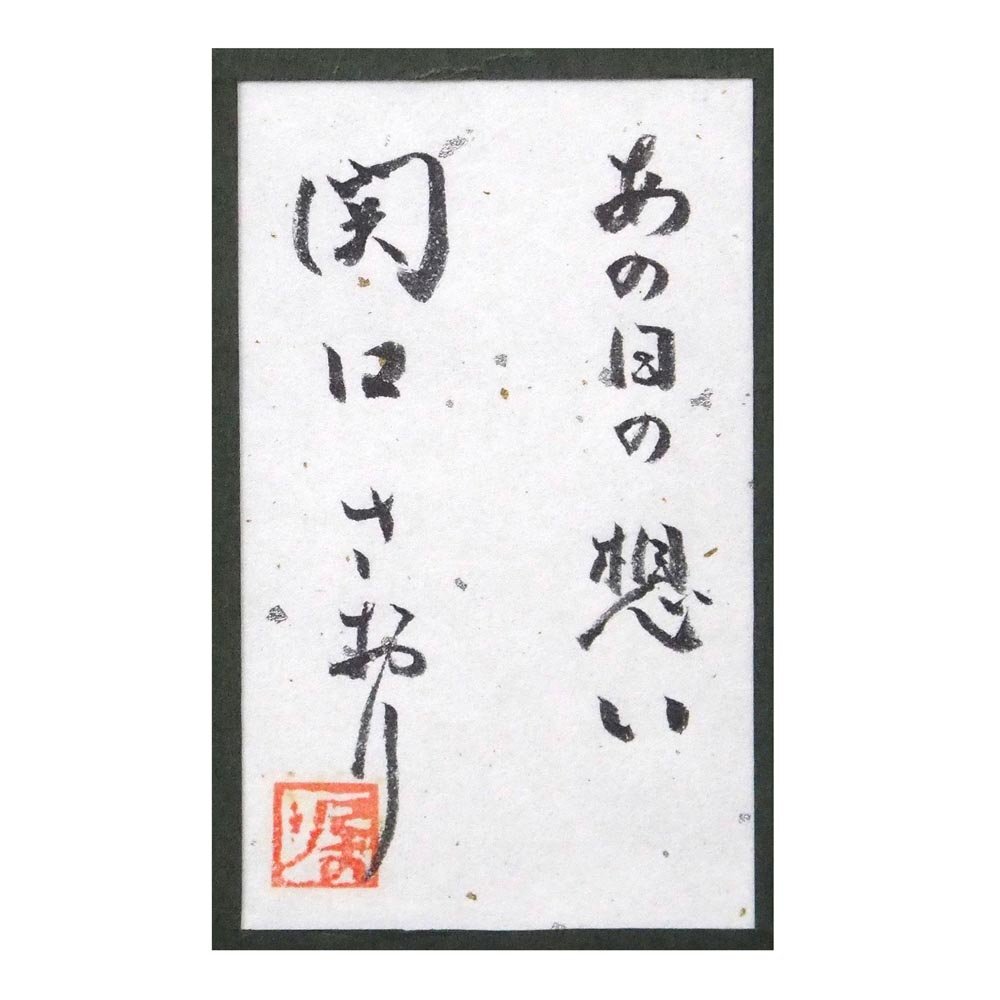 あの日の想い
関口さおり